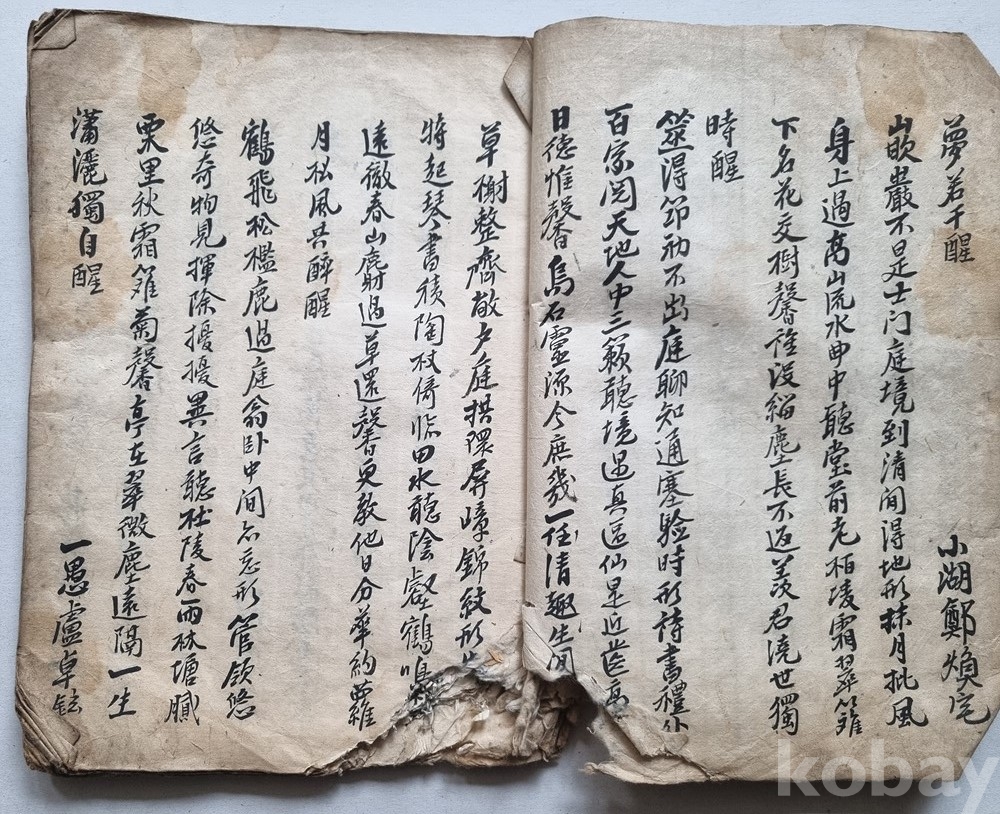 夢若干醒
小湖鄭煥宅
嵌巖不是士门庭境到清闲得地形抹月批風
身上過高山流水曲中聽堂前老栢凌霜翠籬
下名花交樹馨雖沒緇塵長不返羡君淸世獨
時醒
筮得節初不出庭聊知通塞驗時形詩書禮外
百家図天地人中三籟聽境逞真區仙是近
日德惟馨烏石靈源今庶幾一任清趣生间
草榭整齊敞夕庭拱環屏嶂錦紋形
將起琴書積陶杖倚臨田水聽陰壑鶴鳴
遠徹春山麝過草還馨更教他日分華約蘿
月松風共醉醒
鶴飛松檻鹿過庭翁卧中间忘形管領悠
悠奇物見揮除擾擾異言聽杜陵春雨秋塘膩
栗里秋霜籬菊馨亭在翠微塵遠隔一生
瀟灑獨自醒
一愚盧卓鉉
kobay